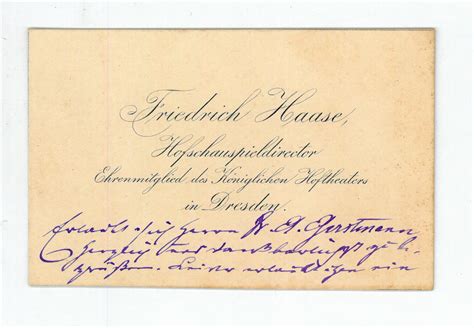 Friedrich Haase,
Hofschauspieldirector
Ehrenmitglied des Königlichen Hoftheaters
in Dresden.
Erlaubt sich Herrn W. A. Gerstmann
herzlich und dankbarlichst zu be-
grüßen. Leider erlaubt ihm ein